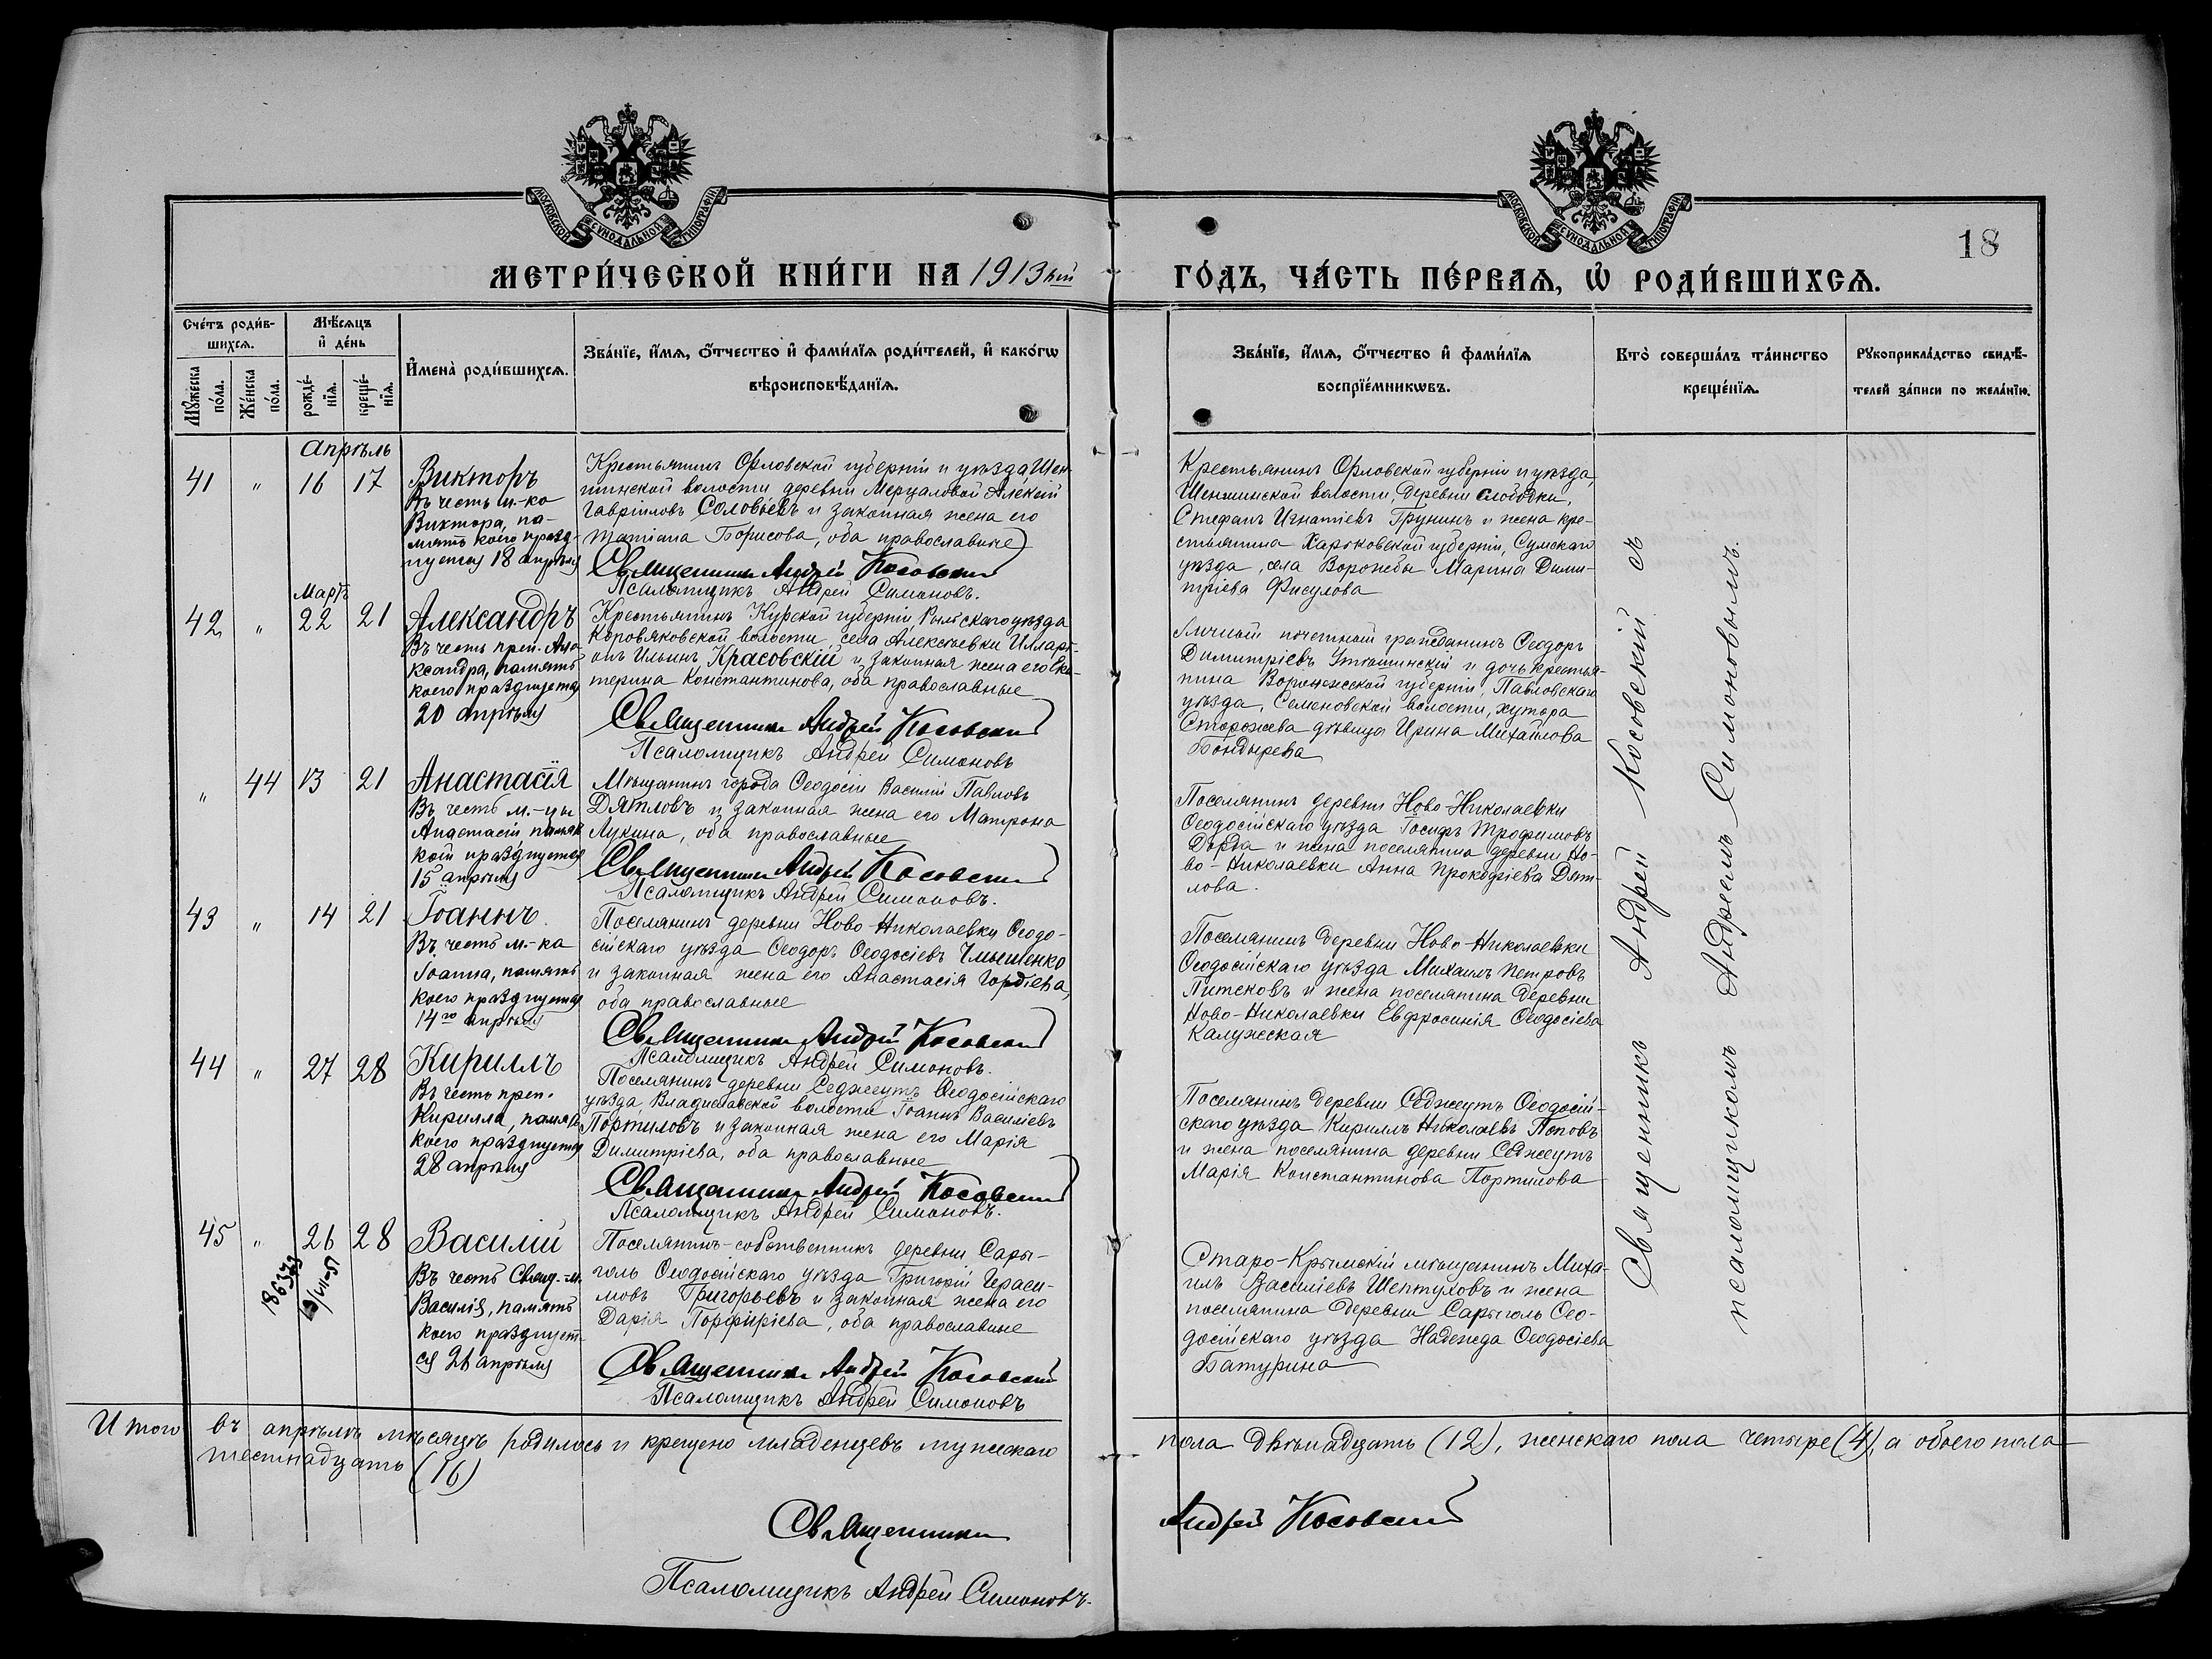 МОСКОВСКОЙ СУНОДАЛЬНОЙ ТИПОГРАФІИ
МОСКОВСКОЙ СУНОДАЛЬНОЙ ТИПОГРАФІИ
18
МЕТРИ́ЧЕСКОЙ КНИ́ГИ НА 1913ый
ГО́ДЪ, ЧА́СТЬ ПЕ́РВАѦ, Ѡ РОДИ́ВШИХСѦ.
Сче́тъ роди́в-
шихсѧ.
Мꙋжеска по́ла.
Же́нска по́ла.
Мѣ́сѧцъ
и де́нь
рожде́-
нїѧ.
креще́-
нїѧ.
И҆мена̀ роди́вшихсѧ.
Зва́нїе, и҆́мѧ, ѻ҆́тчество и҆ фами́лїѧ роди́телей, и҆ како́гѡ
вѣроисповѣ́данїѧ.
Зва́нїе, и҆́мѧ, ѻ҆́тчество и҆ фами́лїѧ
воспрїе́мникѡвъ.
Кто̀ соверша́лъ та́инство
креще́нїѧ.
Рꙋкоприкла́дство свидѣ́-
телей за́писи по жела́нїю.
Апрѣль
41 " 16 17
Викторъ
Въ честь м-ка
Виктора, па-
мять коего празд-
нуется 18 апрѣля
Крестьянинъ Орловской губерніи и уѣзда, Шен-
шинской волости, деревни Мерцаловой Алексій
Гавріиловъ Соловьевъ и законная жена его
Татіана Борисова, оба православные
Священникъ Андрей Косовскій
Псаломщикъ Андрей Симоновъ.
Крестьянинъ Орловской губерніи и уѣзда,
Шеншинской волости, деревни Слободки,
Стефанъ Игнатіевъ Грунинъ и жена кре-
стьянина Харьковской губерніи, Сумскаго
уѣзда, села Ворожбы Марина Дими-
тріева Фисулова
Мартъ
42 " 22 21
Александръ
Въ честь преп. Але-
ксандра, память
коего празднуется
20 апрѣля
Крестьянинъ Курской губерніи, Рыльскаго уѣзда
Коровяковской волости, села Алексѣевки Илларі-
онъ Ильинъ Красовскій и законная жена его Ека-
терина Константинова, оба православные
Священникъ Андрей Косовскій
Псаломщикъ Андрей Симоновъ
Личный почетный гражданинъ Ѳеодоръ
Димитріевъ и дочь крестья-
нина Воронежской губерніи, Павловскаго
уѣзда, Семеновской волости, хутора
Сторожева дѣвица Ирина Михайлова
Бондырева
" 44 13 21
Анастасія
Въ честь м-цы
Анастасіи память
коей празднуется
15 апрѣля
Мѣщанинъ города Ѳеодосіи Василій Павловъ
Дятловъ и законная жена его Матрона
Лукина, оба православные
Священникъ Андрей Косовскій
Псаломщикъ Андрей Симоновъ.
Поселянинъ деревни Ново-Николаевки
Ѳеодосійскаго уѣзда Іосифъ Трофимовъ
Дорда и жена поселянина деревни Но-
во-Николаевки Анна Прокофіева Дят-
лова.
43 " 14 21
Іоаннъ
Въ честь м-ка
Іоанна, память
коего празднуется
14го апрѣля
Поселянинъ деревни Ново-Николаевки Ѳеодо-
сійскаго уѣзда Ѳеодоръ Ѳеодосіевъ
и законная жена его Анастасія Гордіева,
оба православные
Священникъ Андрей Косовскій
Псаломщикъ Андрей Симоновъ.
Поселянинъ деревни Ново-Николаевки
Ѳеодосійскаго уѣзда Михаилъ Петровъ
Питековъ и жена поселянина деревни
Ново-Николаевки Евфросинія Ѳеодосіева
Калужская
44 " 27 28
Кириллъ
Въ честь преп.
Кирилла, память
коего празднуется
28 апрѣля
Поселянинъ деревни Седжеутъ Ѳеодосійскаго
уѣзда, Владиславской волости Іоаннъ Василіевъ
Портиловъ и законная жена его Марія
Димитріева, оба православные
Священникъ Андрей Косовскій
Псаломщикъ Андрей Симоновъ.
Поселянинъ деревни Седжеутъ Ѳеодосій-
скаго уѣзда Кириллъ Николаевъ Поповъ
и жена поселянина деревни Седжеутъ
Марія Константинова Портилова
45 " 26 28
186373
Василій
Въ честь Свящ.-м.
Василія, память
коего празднует-
ся 26 апрѣля
Поселянинъ-собственникъ деревни Сары-
голь Ѳеодосійскаго уѣзда Григорій Гераси-
мовъ Григорьевъ и законная жена его
Дарія Порфиріева, оба православные
Священникъ Андрей Косовскій
Псаломщикъ Андрей Симоновъ
Старо-Крымскій мѣщанинъ Миха-
илъ Василіевъ Шептуховъ и жена
поселянина деревни Сарыголь Ѳео-
досійскаго уѣзда Надежда Ѳеодосіева
Батурина
Священникъ Андрей Косовскій съ
псаломщикомъ Андреемъ Симоновымъ.
Итого въ апрѣлѣ мѣсяцѣ родилось и крещено младенцевъ мужскаго пола двѣнадцать (12), женскаго пола четыре (4), а обоего пола
шестнадцать (16)
Священникъ Андрей Косовскій
Псаломщикъ Андрей Симоновъ.